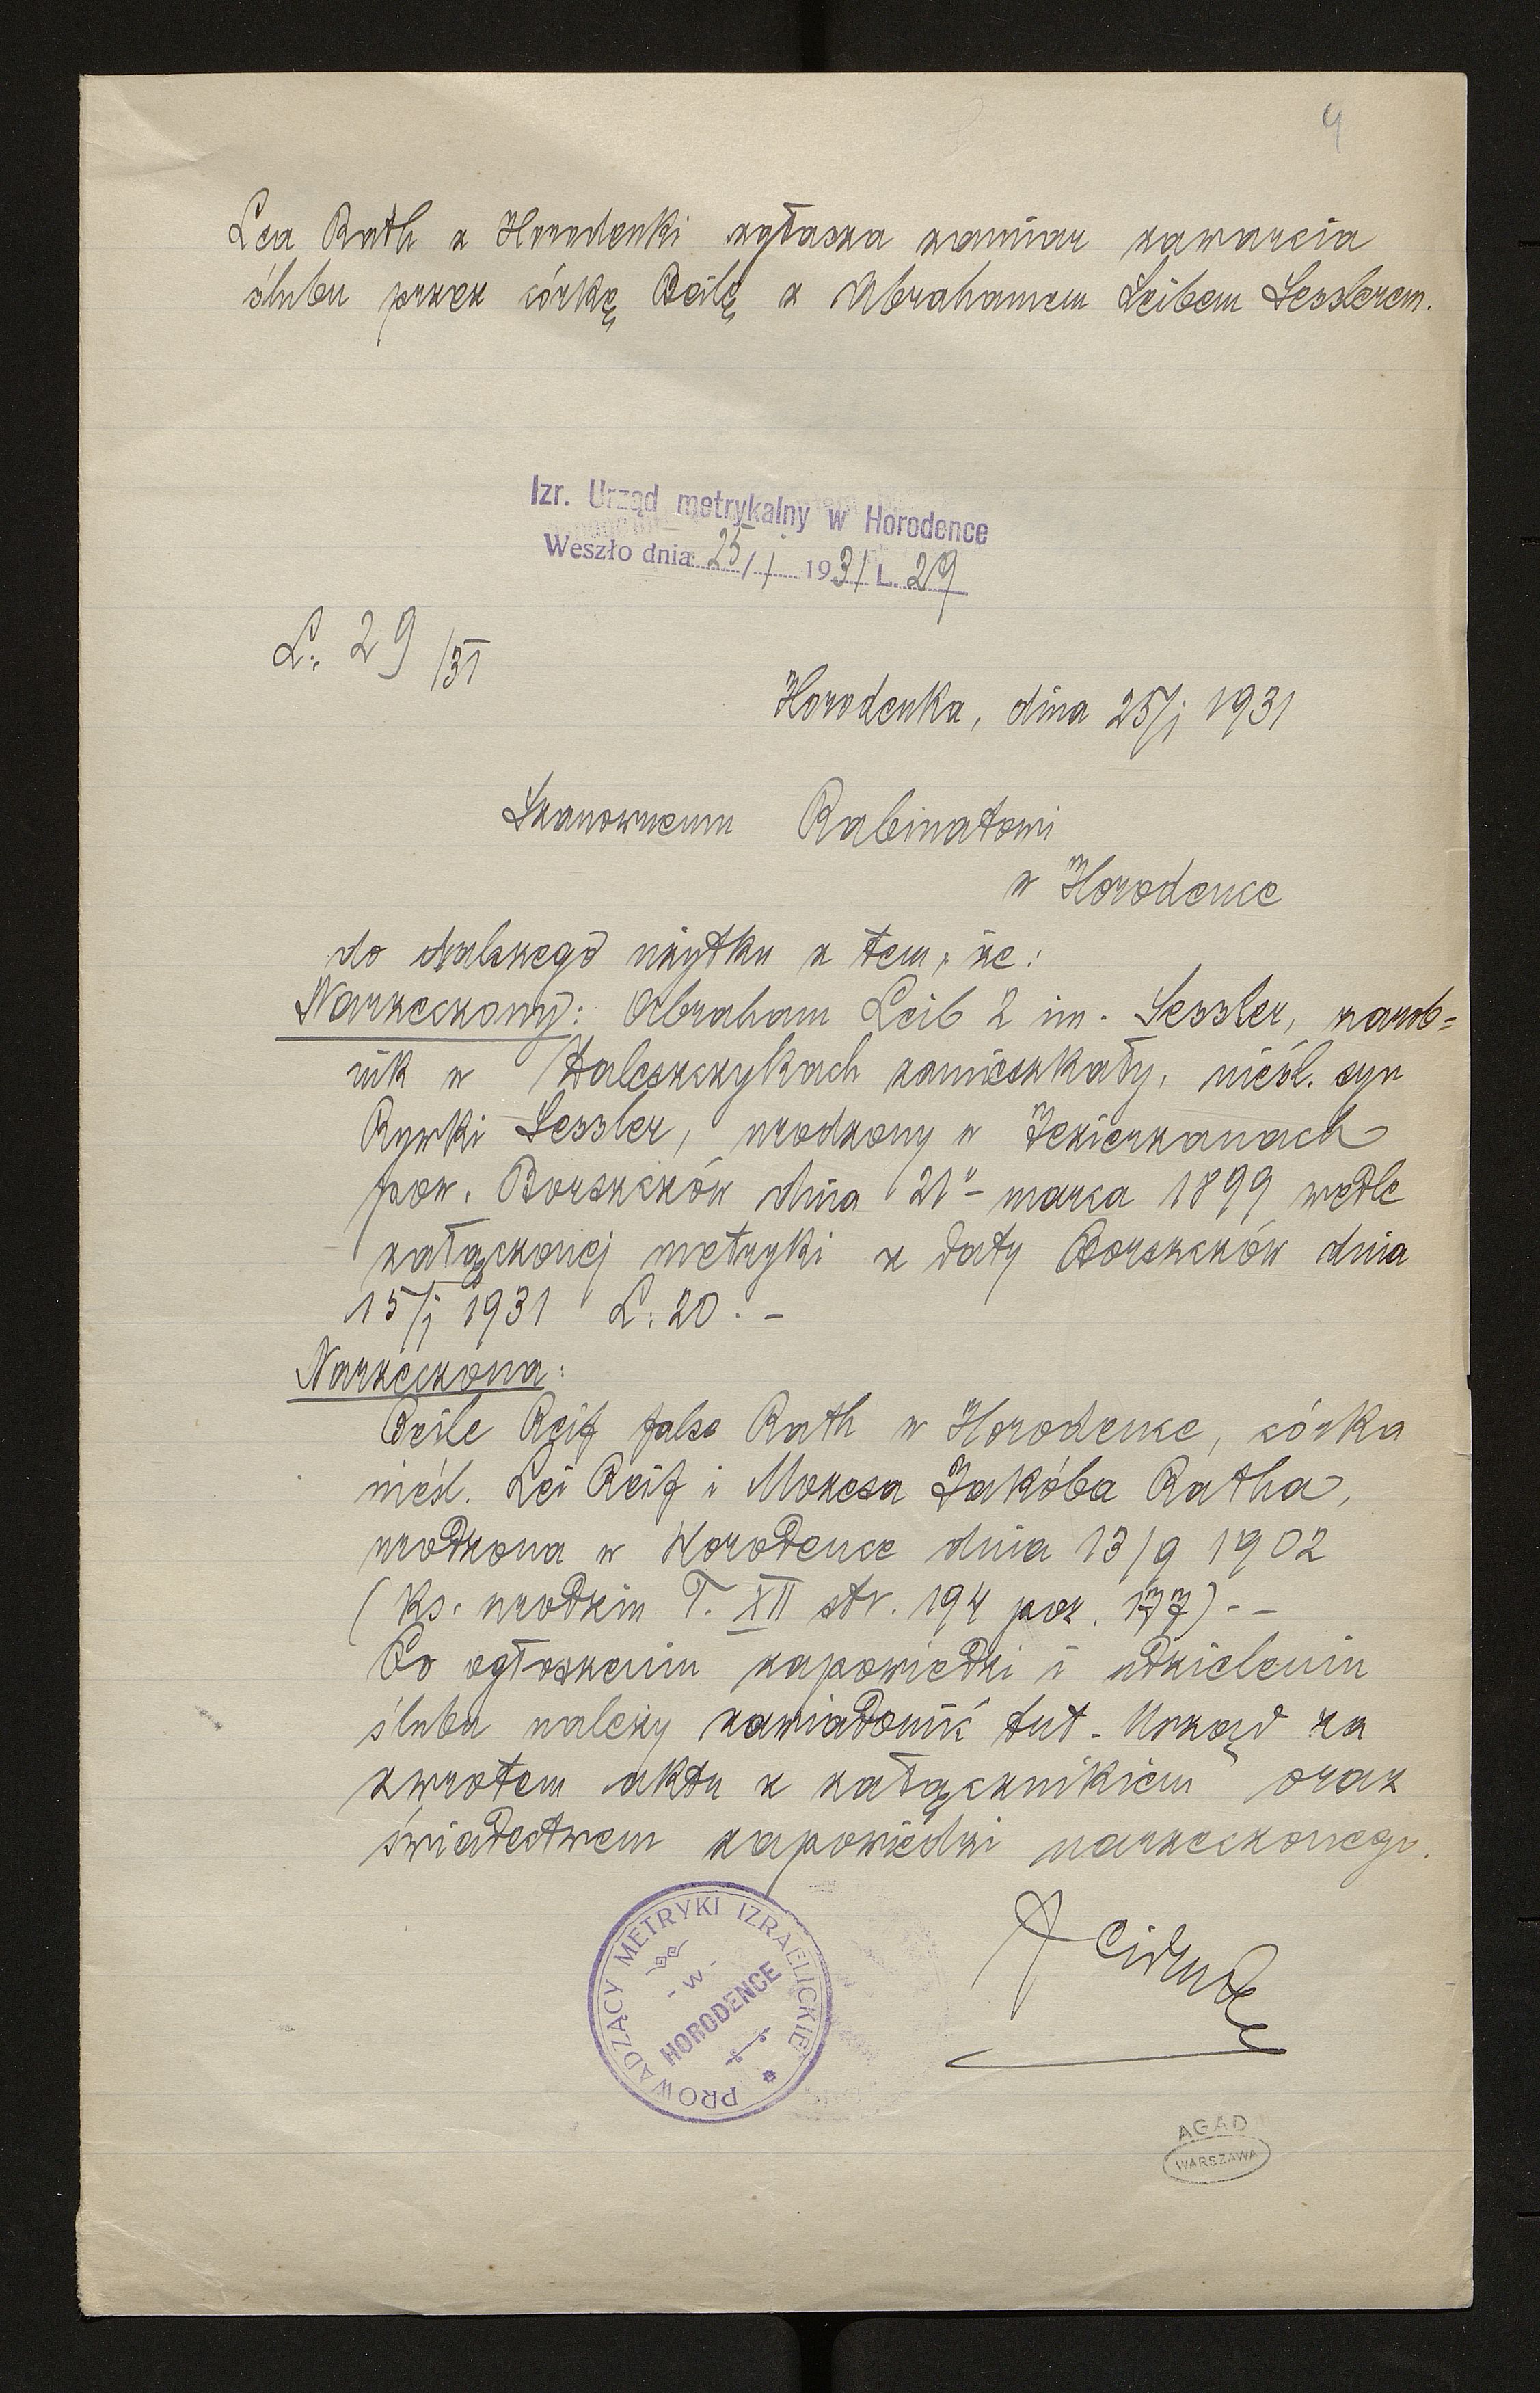 4
Lea Rath z Horodenki zgłasza zamiar zawarcia
ślubu przez córkę Beilę z Abrahamem Leibem Sesslerem.
Izr. Urząd metrykalny w Horodence
Weszło dnia 25/I 1931 L. 29
L: 29/31
Horodenka, dnia 25/I 1931
Szanownemu Rabinatowi
w Horodence
do dalszego użytku z tem, że:
Narzeczony: Abraham Leib 2 im. Sessler, zarob=
nik w Zaleszczykach zamieszkały, nieśl. syn
Rywki Sessler, urodzony w Jezierzanach
pow. Borszczów dnia 21- marca 1899 wedle
załączonej metryki z daty Borszczów dnia
15/I 1931 L: 20. -
Narzeczona:
Beile Reif false Rath w Horodence, córka
nieśl. Lei Reif i Mozesa Jakóba Ratha,
urodzona w Horodence dnia 13/9 1902
(Ks. urodzin T. XII str. 194 poz. 177). - -
Po ogłoszeniu zapowiedzi i udzieleniu
ślubu należy zawiadomić tut. Urząd za
zwrotem aktu z załącznikiem oraz
świadectwem zapowiedzi narzeczonego.
PROWADZĄCY METRYKI IZRAELICKIE
- W -
HORODENCE
AGAD
WARSZAWA